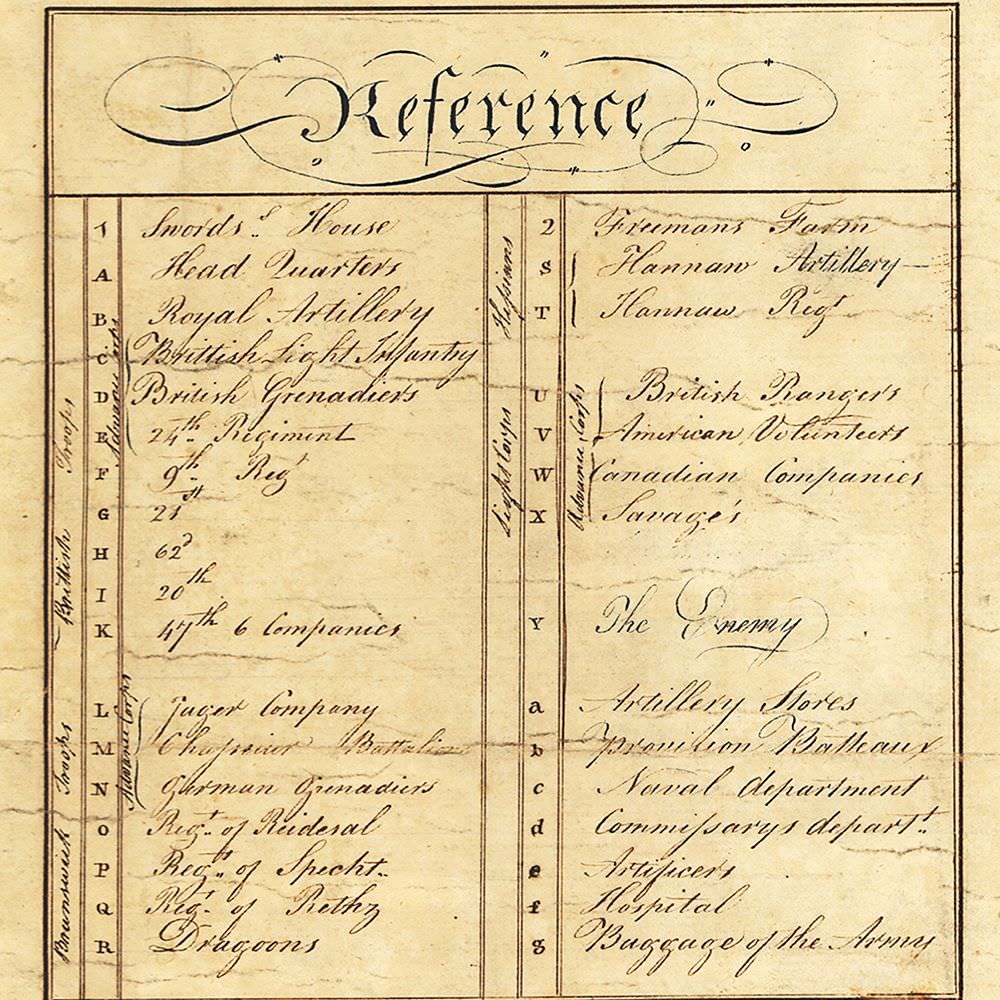 Reference
1 Swords.s House
A Head Quarters
B Royal Artillery
C Brittish Light Infantry
D British Grenadiers
E 24th Regiment
F 9th Regt
G 21st
H 62d
I 20th
K 47th 6 Companies
Advance Corps
Brittish Troops
L Jager Company
M Chasseur Battalion
N German Grenadiers
O Regt. of Reidesal
P Regt. of Specht..
Q Regt. of Rethz
R Dragoons
Advance Corps
Brunswick Troops
2 Freemans Farm
S Hannaw Artillery
T Hannaw Regt
Hessians
U British Rangers
V American Volunteers
W Canadian Companies
X Savage's
Advance Corps
Light Corps
Y The Enemy
a Artillery Stores
b Provision Batteaux
c Naval department
d Commissarys depart.t
e Artificers
f Hospital
g Baggage of the Army